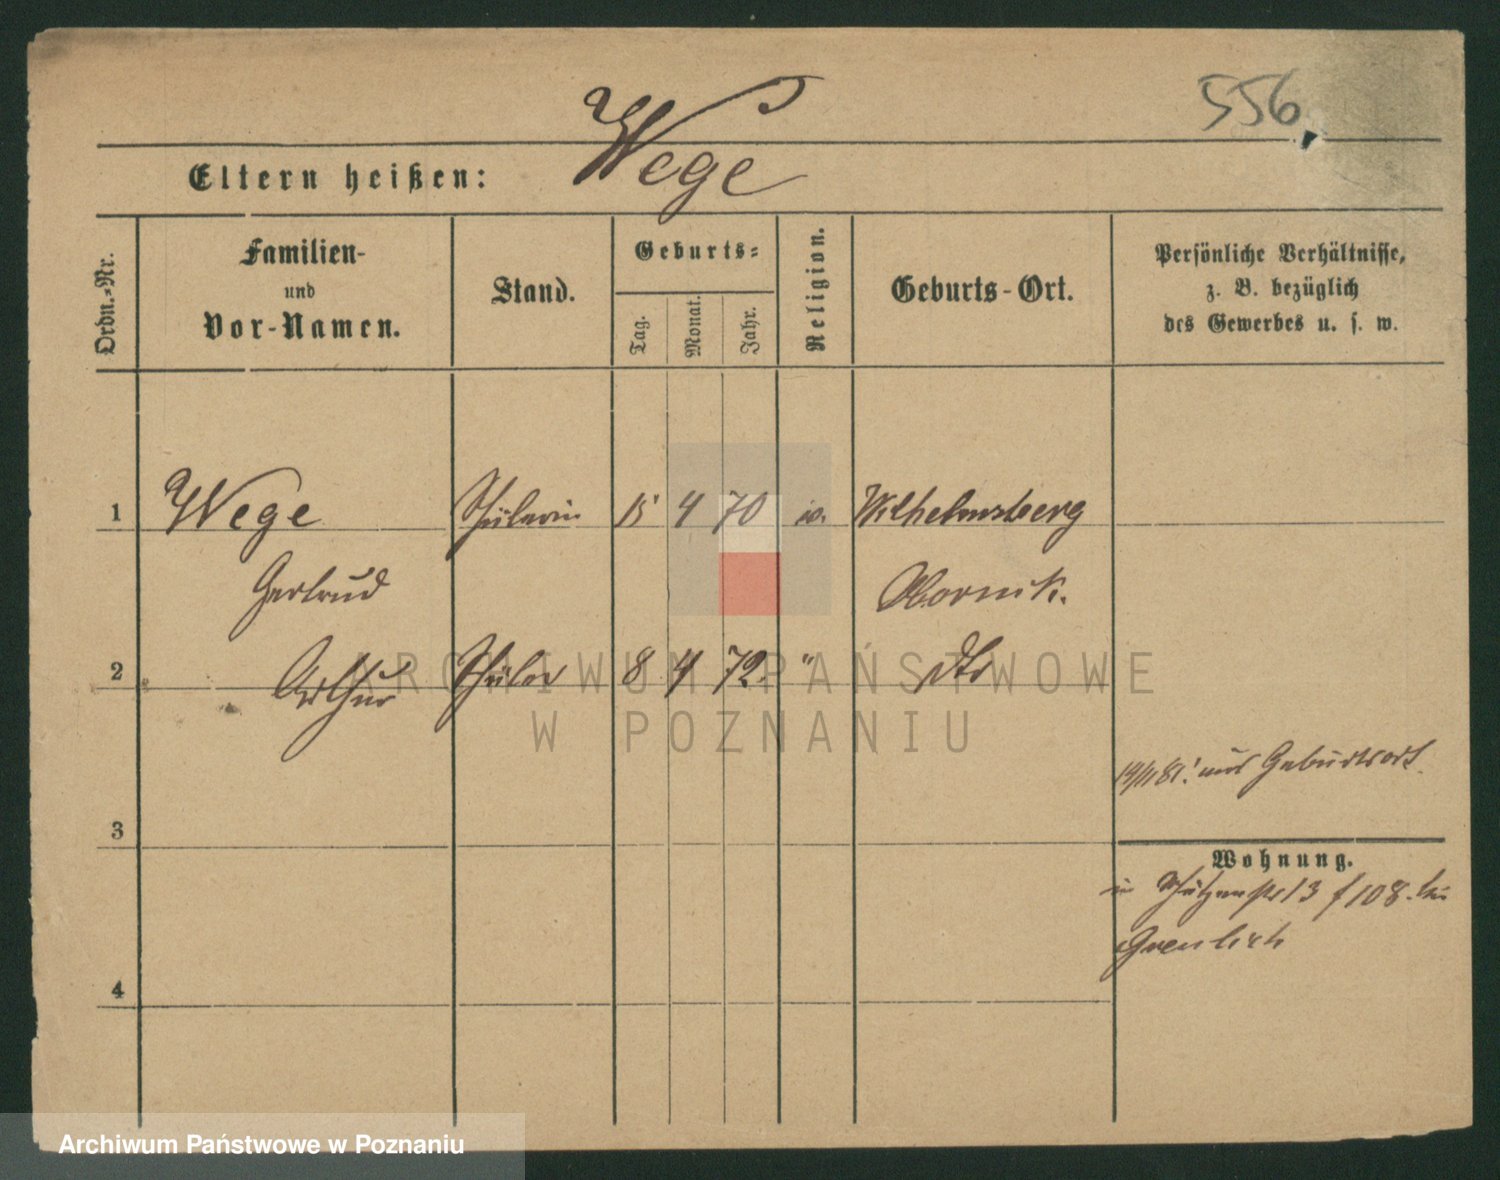 Wege
556
Eltern heißen: Wege
Ordn.-Nr.
Familien-
und
Vor-Namen.
Stand.
Geburts-
Tag.
Monat.
Jahr.
Religion.
Geburts-Ort.
Persönliche Verhältnisse,
z. B. bezüglich
des Gewerbes u. s. w.
1 Wege Schülerin 15 4 70 Wilhelmsberg
Gertrud Obornik.
2 Arthur Schüler 8 4 72. " dto
ARCHIWUM PAŃSTWOWE
W POZNANIU
81. aus Geburtsort.
3
Wohnung.
in Schützenstr 13 f 108. bei
4
Archiwum Państwowe w Poznaniu